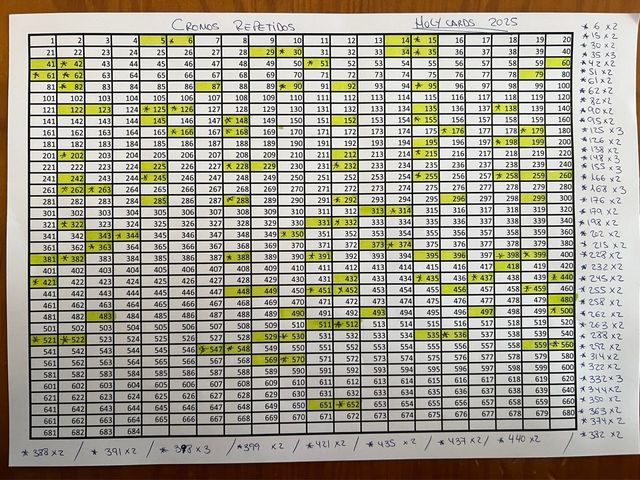 CROMOS REPETIDOS HOLY CARDS 2025
1 2 3 4 5 * 6 7 8 9 10 11 12 13 14 * 15 16 17 18 19 20
21 22 23 24 25 26 27 28 29 * 30 31 32 33 34 * 35 36 37 38 39 40
41 * 42 43 44 45 46 47 48 49 50 * 51 52 53 54 55 56 57 58 59 60
* 61 * 62 63 64 65 66 67 68 69 70 71 72 73 74 75 76 77 78 79 80
81 * 82 83 84 85 86 87 88 89 * 90 91 92 93 94 * 95 96 97 98 99 100
101 102 103 104 105 106 107 108 109 110 111 112 113 114 115 116 117 118 119 120
121 122 123 124 * 125 * 126 127 128 129 130 131 132 133 134 135 136 137 * 138 139 140
141 142 143 144 145 146 147 * 148 149 150 151 152 153 154 * 155 156 157 158 159 160
161 162 163 164 165 * 166 167 * 168 169 170 171 172 173 174 175 * 176 177 178 * 179 180
181 182 183 184 185 186 187 188 189 190 191 192 193 194 195 196 197 * 198 199 200
201 * 202 203 204 205 206 207 208 209 210 211 212 213 214 * 215 216 217 218 219 220
221 222 223 224 225 226 227 * 228 229 230 231 * 232 233 234 235 236 237 238 239 240
241 242 243 244 * 245 246 247 248 249 250 251 252 253 254 * 255 256 257 * 258 259 260
261 * 262 * 263 264 265 266 267 268 269 270 271 272 273 274 275 276 277 278 279 280
281 282 283 284 285 286 287 * 288 289 290 291 * 292 293 294 295 296 297 298 299 300
301 302 303 304 305 306 307 308 309 310 311 312 313 * 314 315 316 317 318 319 320
321 * 322 323 324 325 326 327 328 329 330 331 * 332 333 334 335 336 337 338 339 340
341 342 343 * 344 345 346 347 348 349 * 350 351 352 353 354 355 356 357 358 359 360
361 362 * 363 364 365 366 367 368 369 370 371 372 373 * 374 375 376 377 378 379 380
381 * 382 383 384 385 386 387 * 388 389 390 * 391 392 393 394 395 396 397 * 398 * 399 400
401 402 403 404 405 406 407 408 409 410 411 412 413 414 415 416 417 418 419 420
* 421 422 423 424 425 426 427 428 429 430 431 432 433 434 * 435 436 * 437 438 439 * 440
441 442 443 444 445 446 447 448 449 450 * 451 * 452 453 454 455 456 457 458 * 459 460
461 462 463 464 465 466 467 468 469 470 471 472 473 474 475 476 477 478 479 480
481 482 483 484 485 486 487 488 489 490 491 492 493 494 495 496 497 498 499 * 500
501 502 503 504 505 506 507 508 509 510 511 * 512 513 514 515 516 517 518 519 520
* 521 * 522 523 524 525 526 527 528 529 * 530 531 532 533 534 535 * 536 537 538 539 540
541 542 543 544 545 546 * 547 * 548 549 550 551 552 553 554 555 556 557 558 559 * 560
561 562 563 564 565 566 567 568 569 * 570 571 572 573 574 575 576 577 578 579 580
581 582 583 584 585 586 587 588 589 590 591 592 593 594 595 596 597 598 599 600
601 602 603 604 605 606 607 608 609 610 611 612 613 614 615 616 617 618 619 620
621 622 623 624 625 626 627 628 629 630 631 632 633 634 635 636 637 638 639 640
641 642 643 644 645 646 647 648 649 650 651 * 652 653 654 655 656 657 658 659 660
661 662 663 664 665 666 667 668 669 670 671 672 673 674 675 676 677 678 679 680
681 682 683 684
* 6 x2
* 15 x2
* 30 x2
* 35 x2
* 42 x2
* 51 x2
* 61 x2
* 62 x2
* 82 x2
* 90 x2
* 95 x2
* 125 x3
* 126 x2
* 138 x2
* 148 x3
* 155 x3
* 166 x2
* 168 x3
* 176 x2
* 179 x2
* 198 x2
* 202 x2
* 215 x2
* 228 x2
* 232 x2
* 245 x2
* 255 x2
* 258 x2
* 262 x2
* 263 x2
* 288 x2
* 292 x2
* 314 x2
* 322 x2
* 332 x3
* 344 x2
* 350 x2
* 363 x2
* 374 x2
* 382 x2
* 388 x2 / * 391 x2 / * 398 x3 / * 399 x2 / * 421 x2 / * 435 x2 / * 437 x2 / * 440 x2 /